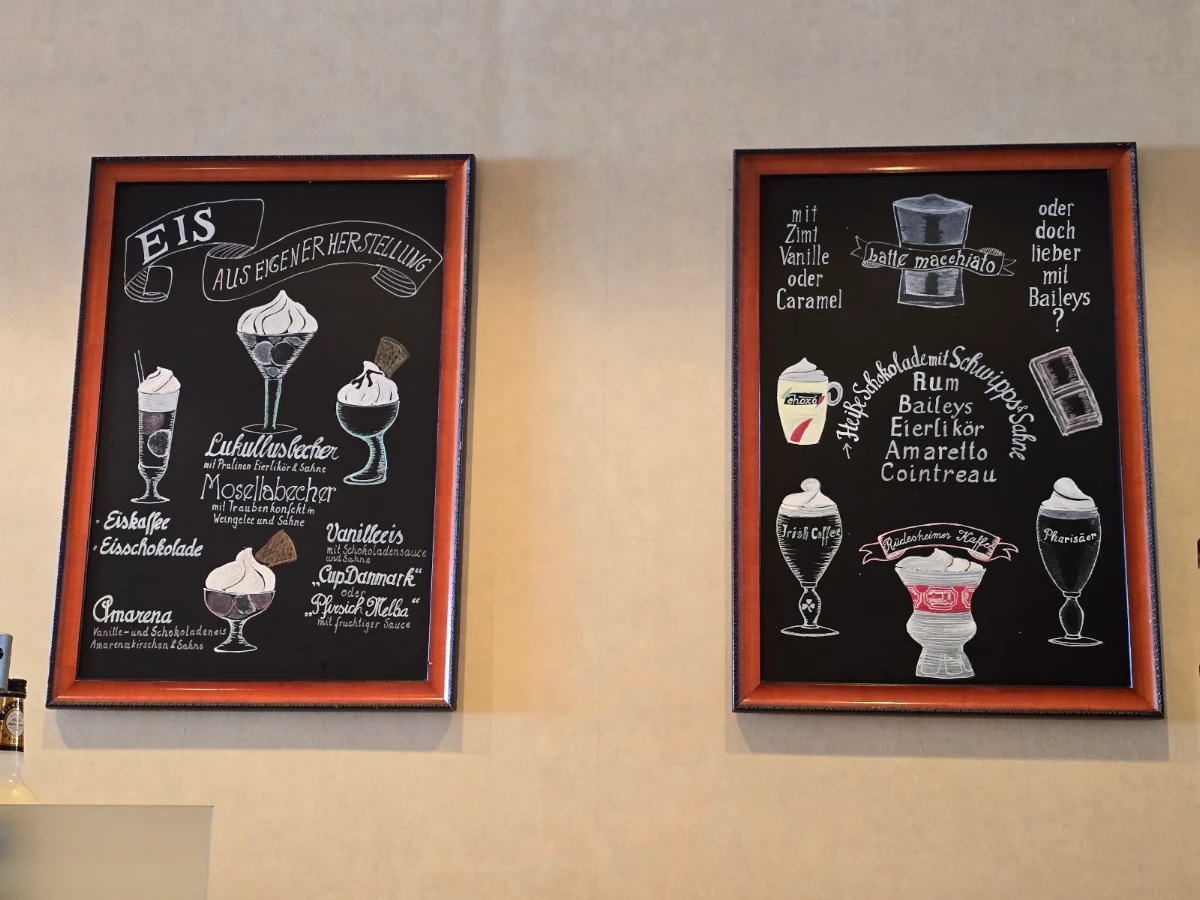 EIS
AUS EIGENER HERSTELLUNG
Lukullusbecher
mit Pralinen Eierlikör & Sahne
Mosellabecher
mit Traubenkonfekt in
Weingelee und Sahne
• Eiskaffee
• Eisschokolade
Vanilleeis
mit Schokoladensauce
und Sahne
„Cup Danmark“
oder
„Pfirsich Melba“
mit fruchtiger Sauce
Amarena
Vanille- und Schokoladeneis
Amarenakirschen & Sahne
mit
Zimt
Vanille
oder
Caramel
Latte macchiato
oder
doch
lieber
mit
Baileys
?
Heiße Schokolade mit Schwipps & Sahne
Rum
Baileys
Eierlikör
Amaretto
Cointreau
choxo
Irish Coffee
Rüdesheimer Kaffee
Pharisäer